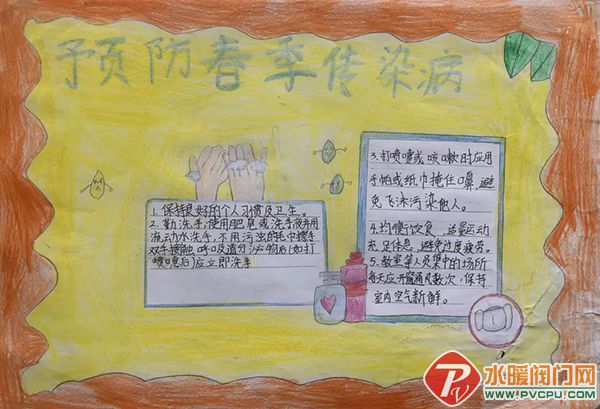 预防春季传染病
1. 保持良好的个人习惯及卫生。
2. 勤洗手,使用肥皂或洗手液并用
流动水洗手,不用污浊的毛巾擦手
双手接触呼吸道分泌物后(如打
喷嚏后)应立即洗手
3. 打喷嚏或咳嗽时应用
手帕或纸巾掩住口鼻,避
免飞沫污染他人。
4. 均衡饮食,适量运动
充足休息,避免过度疲劳。
5. 教室等人员集中的场所
每天应开窗通风数次,保持
室内空气新鲜。
水暖阀门网
WWW.PVCPU.COM